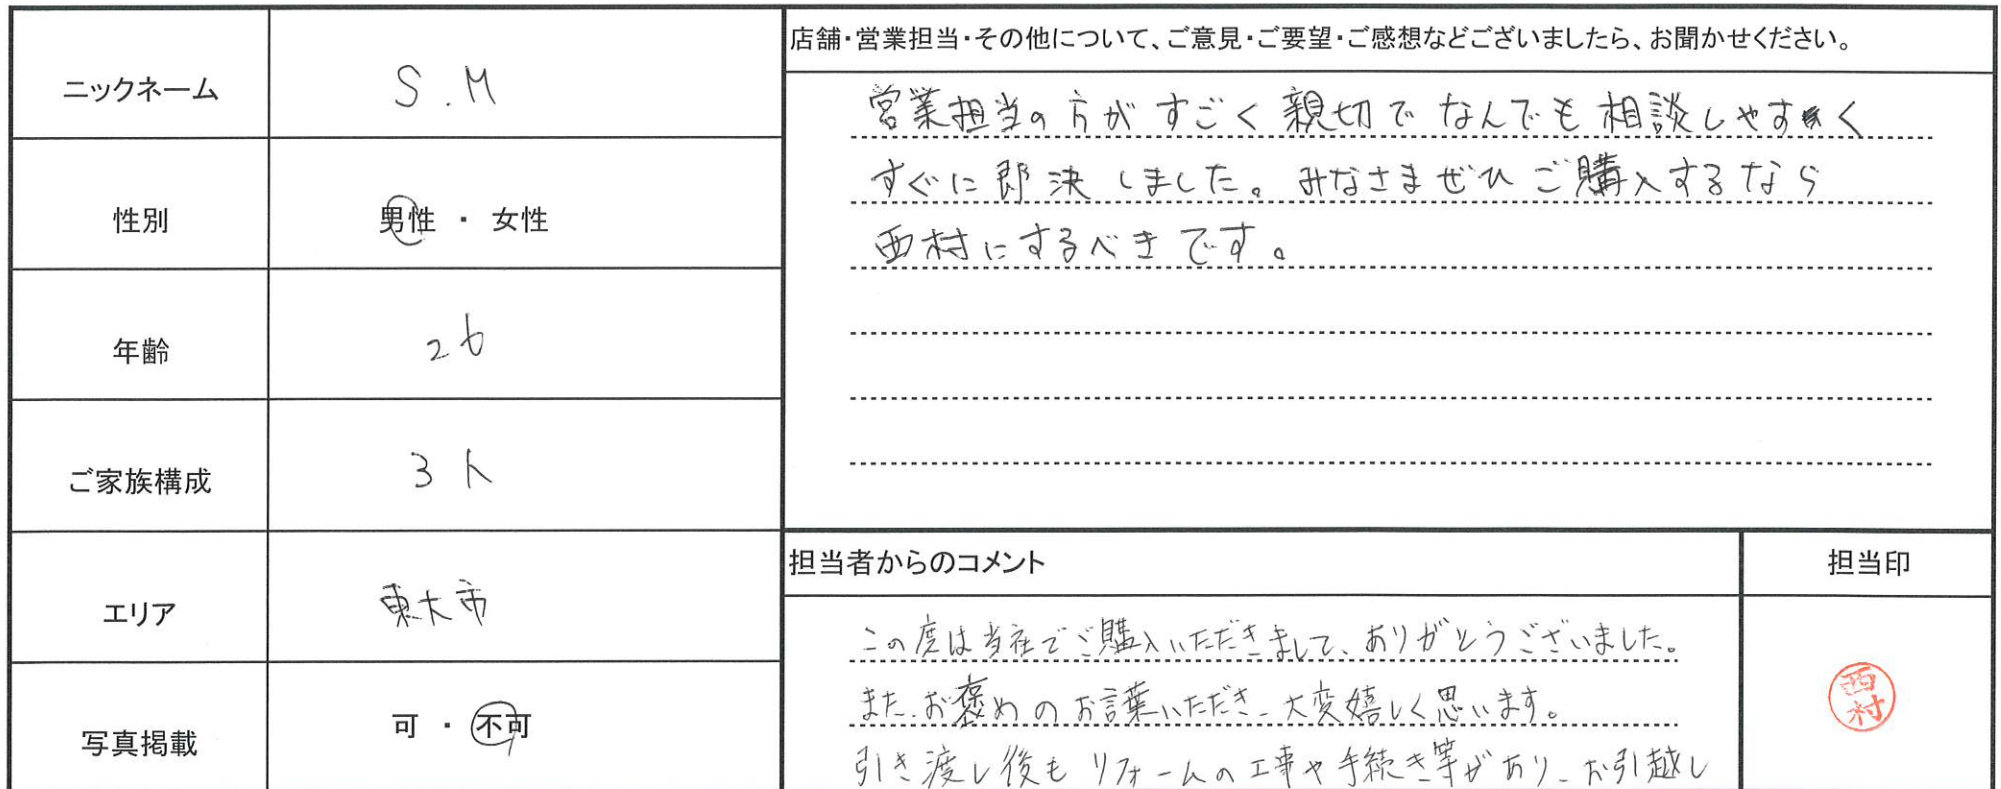 ニックネーム
S.M
性別
男性 ・ 女性
年齢
26
ご家族構成
3人
エリア
東大市
写真掲載
可 ・ 不可
店舗・営業担当・その他について、ご意見・ご要望・ご感想などございましたら、お聞かせください。
営業担当の方がすごく親切でなんでも相談しやすく
すぐに即決しました。みなさまぜひご購入するなら
西村にするべきです。
担当者からのコメント
この度は当社でご購入いただきまして、ありがとうございました。
また、お褒めのお言葉いただき、大変嬉しく思います。
引き渡し後もリフォームの工事や手続き等があり、お引越し
担当印
西村